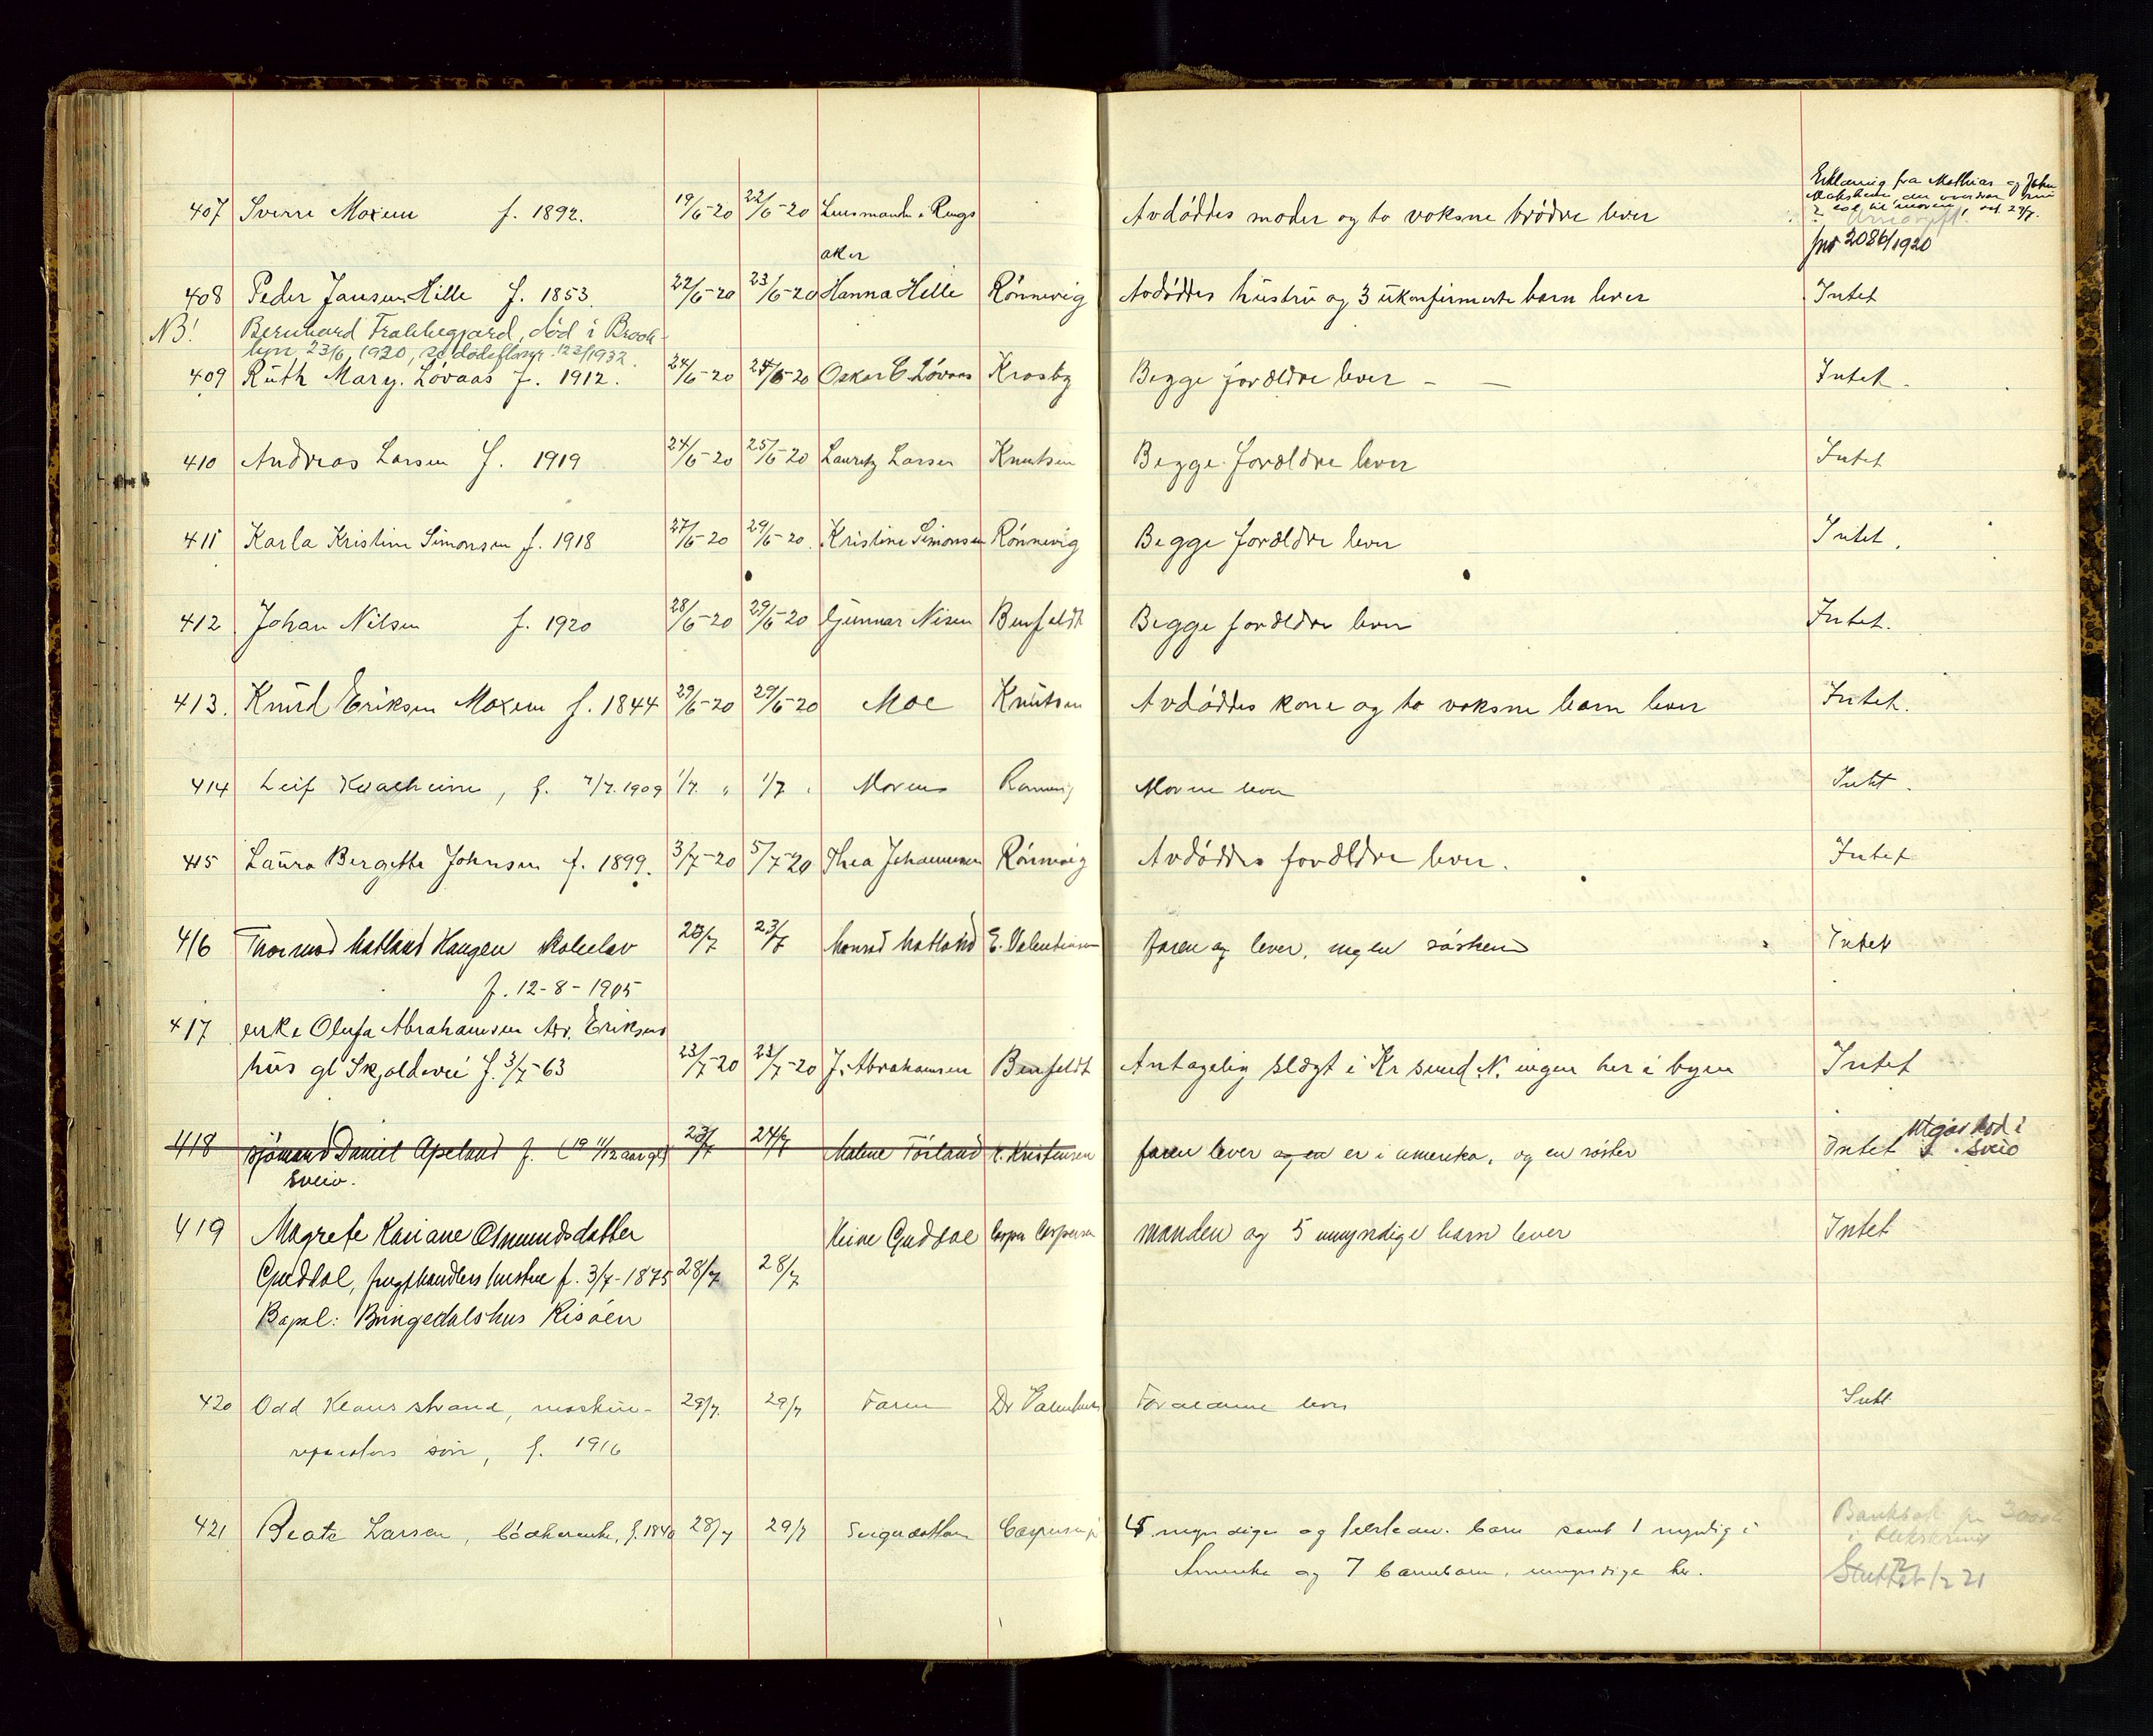 407 Sverre Moxum f. 1892. 19/6-20 22/6-20 Lensmanden i Rings Avdøddes moder og to voksne brødre lever Erklæring fra Mathias og John
aker
jnr 2086/1920
408 Peder Jansen Hille f. 1853. 22/6-20 23/6-20 Hanna Helle Rønnevig Avdøddes hustru og 3 ukonfirmerte barn lever Intet
NB! Bernhard Frakkegjærd, død i Brook-
lyn 23/6 1920, se dødsfallsnr. 123/1932.
409 Ruth Mary. Løvaas f. 1912. 24/6-20 24/6-20 Oskar E. Løvaas Krosby Begge forældre lever - — Intet.
410 Andreas Larsen f. 1919 24/6-20 25/6-20 Lauritz Larsen Knutsen Begge forældre lever Intet
411 Karla Kristine Simonsen f. 1918 27/6-20 29/6-20. Kristine Simonsen Rønnevig Begge forældre lever Intet.
412 Johan Nilsen f. 1920 28/6-20 29/6-20 Gunnar Nisen Benfeldt Begge forældre lever Intet.
413. Knud Eriksen Moxum f. 1844 29/6-20 29/6-20 Moe Knutsen Avdøddes kone og to voksne barn lever Intet.
414 Leif Kvalheim, f. 7/7.1909 1/7. " 1/7 " Moren Moren lever Intet.
415 Laura Bergitte Johnsen f. 1899. 3/7-20 5/7-20 Thea Johannesen Rønnevig Avdøddes forældre lever. Intet
416 Thormod Matland Haugen skoleelev 20/7 23/7 Konrad Matland E. Valentinsen faren og lever, ingen søsken Intet
f. 12-8-1905
417 enke Olufa Abrahamsen Adr. Eriksens
hus gl Skjoldevei f. 3/7-63 23/7-20 23/7-20 J. Abrahamsen Benfeldt Antagelig slægt i Kr sund N. ingen her i byen Intet
418 sjømand Daniel Apeland f. (19 11/12 aar gl) 23/7 24/7 Malene Førland K. Kristensen faren lever og en er i amerika, og en søster Intet Utgår død i
Sveio. Sveio
419 Magrete Kariane Osmundsdatter Heine Guddal Casper Caspersen manden og 5 umyndige barn lever Intet
Guddal, frugthandlers hustru f. 3/7-1875 28/7 28/7
Bopæl: Bringedalshus Risøen
420 Odd Klausstrand, maskin- 29/7. 29/7 Faren Dr Valentinsen Forældrene lever Intet
reparatørs søn, f. 1916
421 Beate Larsen, bødkerenke, f. 1840 28/7 29/7 Caspersen 4 myndige og tilstedev. barn samt 1 myndig i Bankbok
Amerika og 7 barnebarn, umyndige her. Sluttet 21